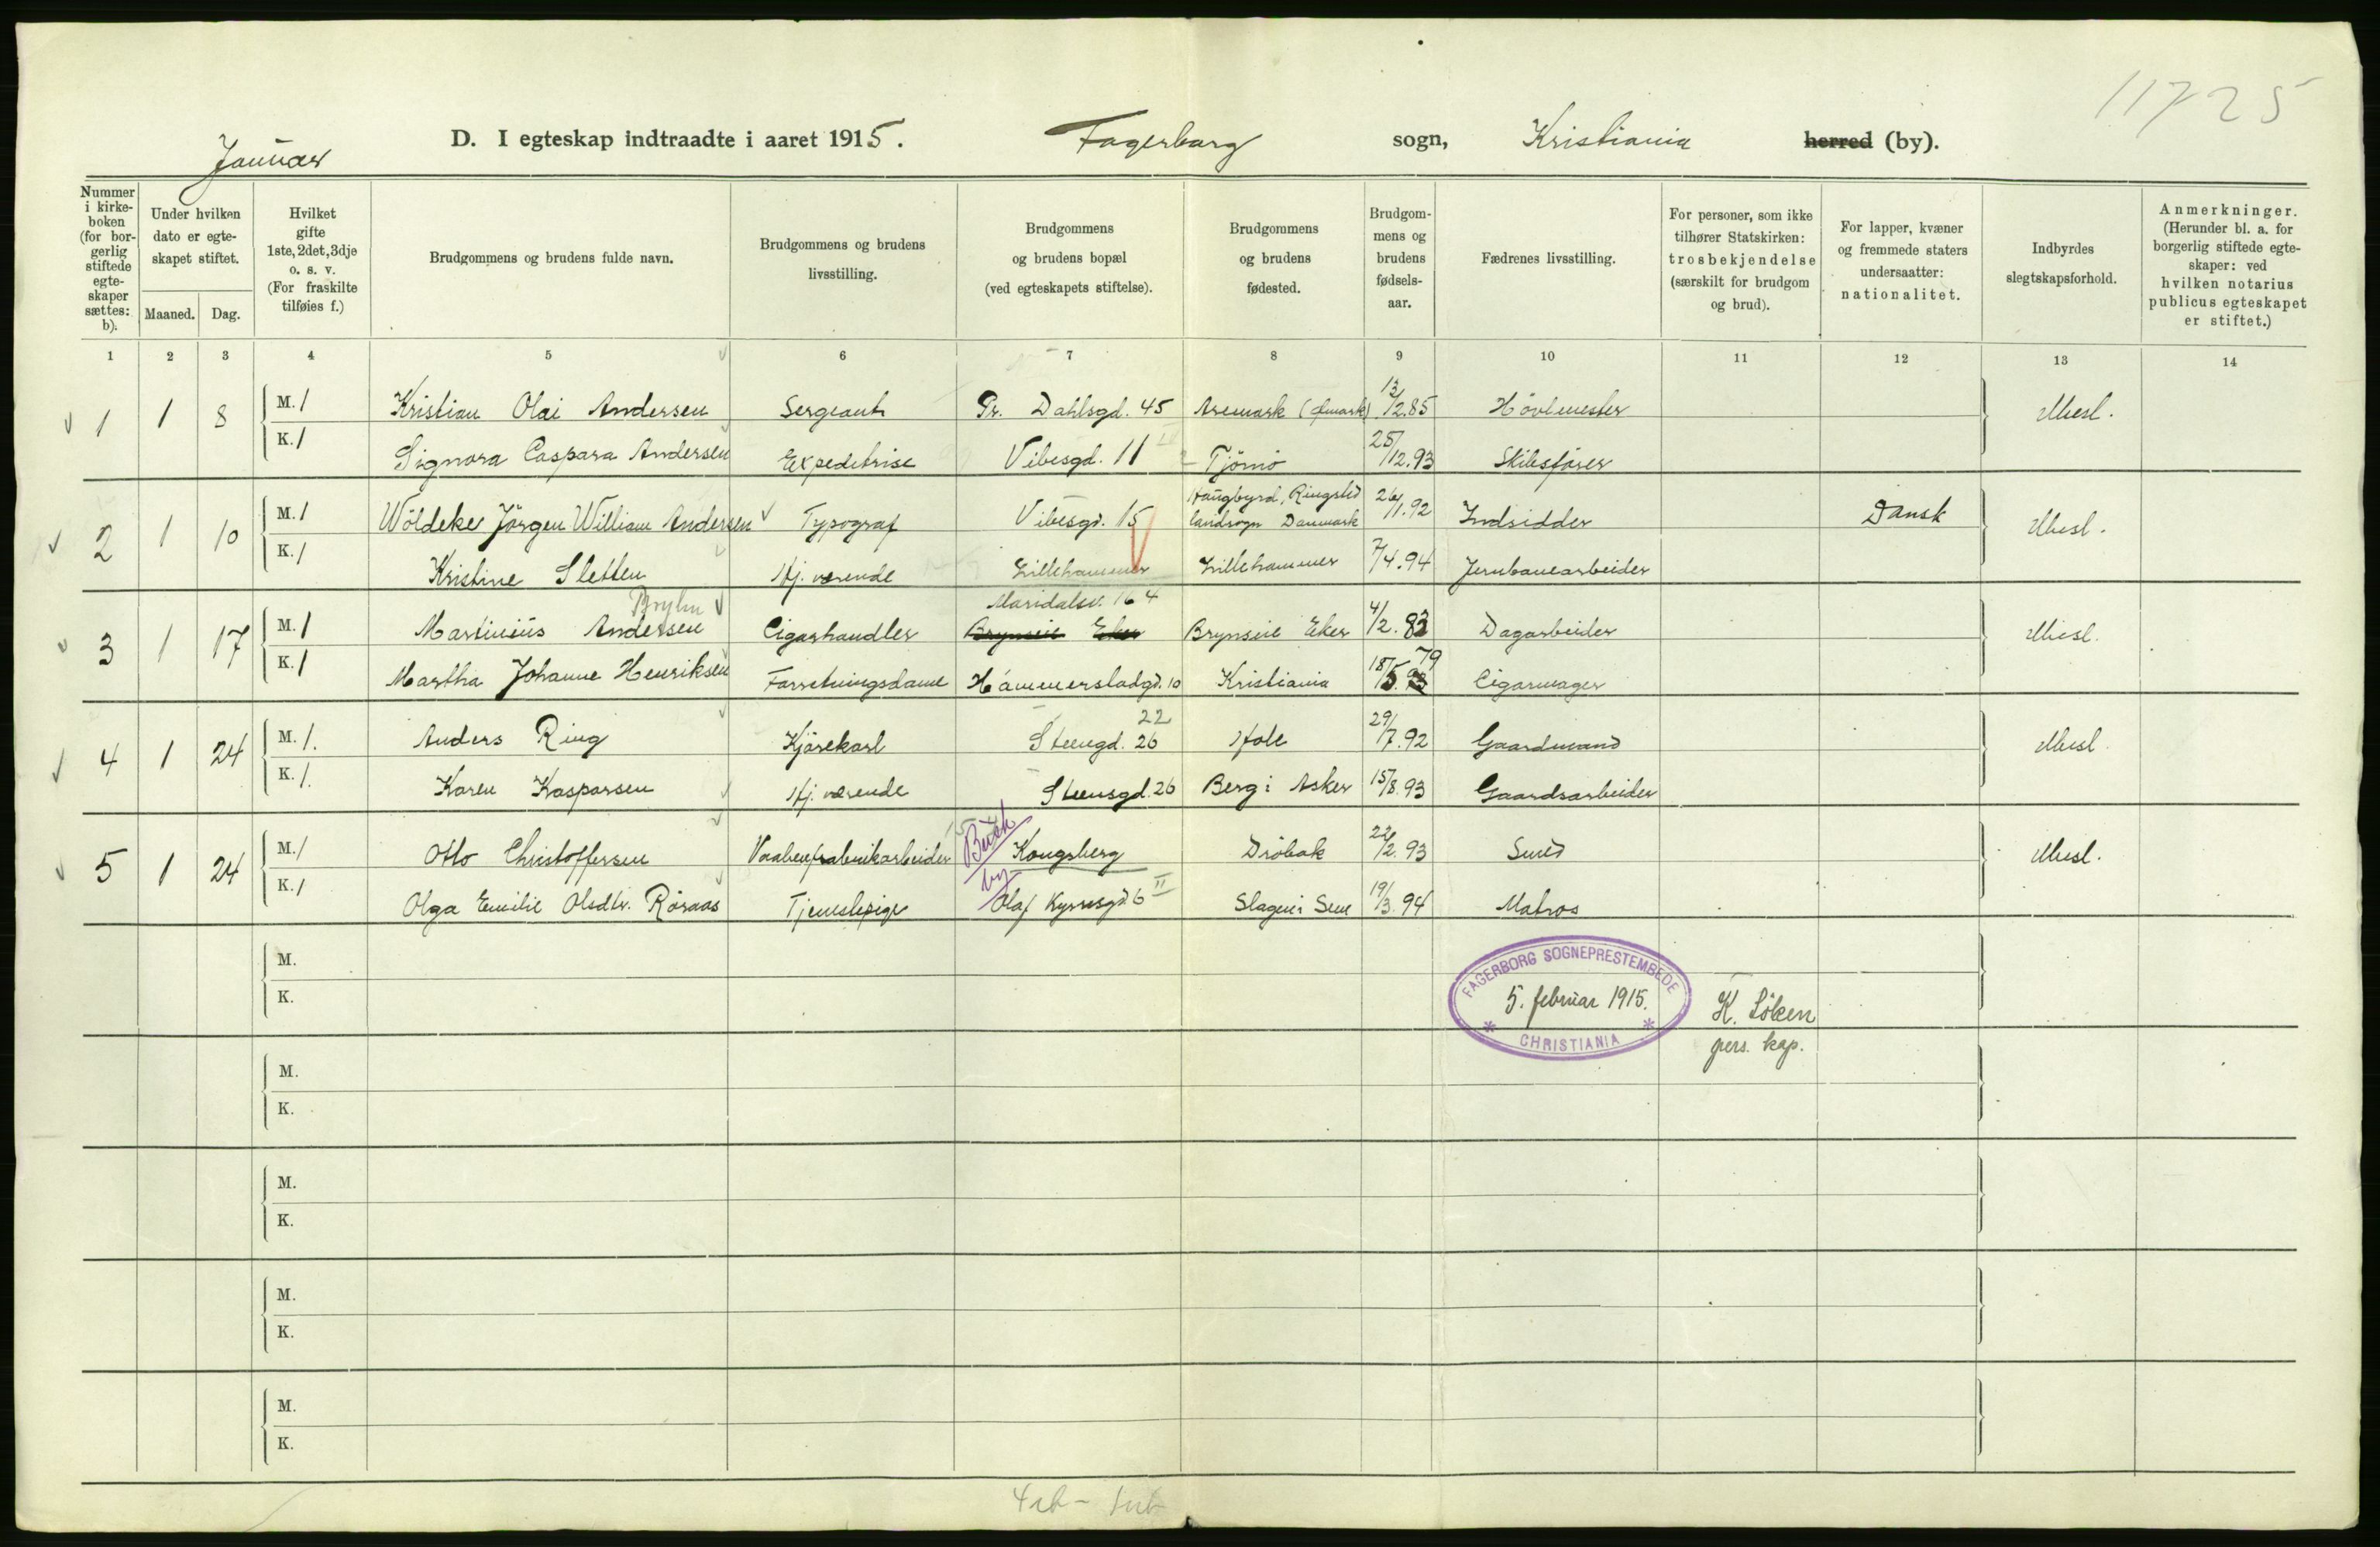 11725
Januar
D. I egteskap indtraadte i aaret 1915. Fagerborg sogn, Kristiania herred (by).
Nummer i kirke-boken (for bor-gerlig stiftede egte-skaper sættes: b).
Under hvilken dato er egte-skapet stiftet.
Maaned. Dag.
Hvilket gifte 1ste, 2det, 3dje o. s. v. (For fraskilte tilføies f.)
Brudgommens og brudens fulde navn.
Brudgommens og brudens livsstilling.
Brudgommens og brudens bopæl (ved egteskapets stiftelse).
Brudgommens og brudens fødested.
Brudgom-mens og brudens fødsels-aar.
Fædrenes livsstilling.
For personer, som ikke tilhører Statskirken: trosbekjendelse (særskilt for brudgom og brud).
For lapper, kvæner og fremmede staters undersaatter: nationalitet.
Indbyrdes slegtskapsforhold.
Anmerkninger. (Herunder bl. a. for borgerlig stiftede egte-skaper: ved hvilken notarius publicus egteskapet er stiftet.)
1 2 3 4 5 6 7 8 9 10 11 12 13 14
1 1 8 M. 1 Kristian Olai Andersen Sergeant Pr. Dahlsgd. 45 Aremark 13/2.85 Hövlmester Ubesl.
K. 1 Signora Caspara Andersen Expeditrise Vibesgd. 11 Tjömö 25/12.93 Skibsfører
2 1 10 M. 1 Wöldeke Jörgen William Andersen Typograf Vibesgd. 15 Haugbyrd, Ringsted landsogn Danmark 26/1.92 Indsidder Dansk Ubesl.
K. 1 Kristine Sletten Hj. værende Lillehammer Lillehammer 7/4.94 Jernbanearbeider
3 1 17 M. 1 Martinius Andersen Bryhn Cigarhandler Maridalsv. 164 Brynseie Eker Brynseie Eker 4/2.83 Dagarbeider Ubesl.
K. 1 Martha Johanne Henriksen Forretningsdame Hammerstadgd. 10 Kristiania 18/5.79 Cigarmager
4 1 24 M. 1. Anders Ring Kjörekarl Steengd. 26 22 Hole 29/7.92 Gaardmand Ubesl.
K. 1. Karen Kaspersen Hj. værende Steensgd. 26 Berg i Asker 15/8.93 Gaardsarbeider
5 1 24 M. 1 Otto Christoffersen Vaabenfabrikarbeider Kongsberg Dröbak 22/2.93 Smed Ubesl.
K. 1 Olga Emilie Olsdtr. Röraas Tjenestepige Olaf Kyrresgd 6 II Slagen i Sem 19/3.94 Matros
by
M.
K.
FAGERBORG SOGNEPRESTEMBEDE
5. februar 1915.
CHRISTIANIA
K. Löken
pers. kap.
M.
K.
M.
K.
M.
K.
M.
K.